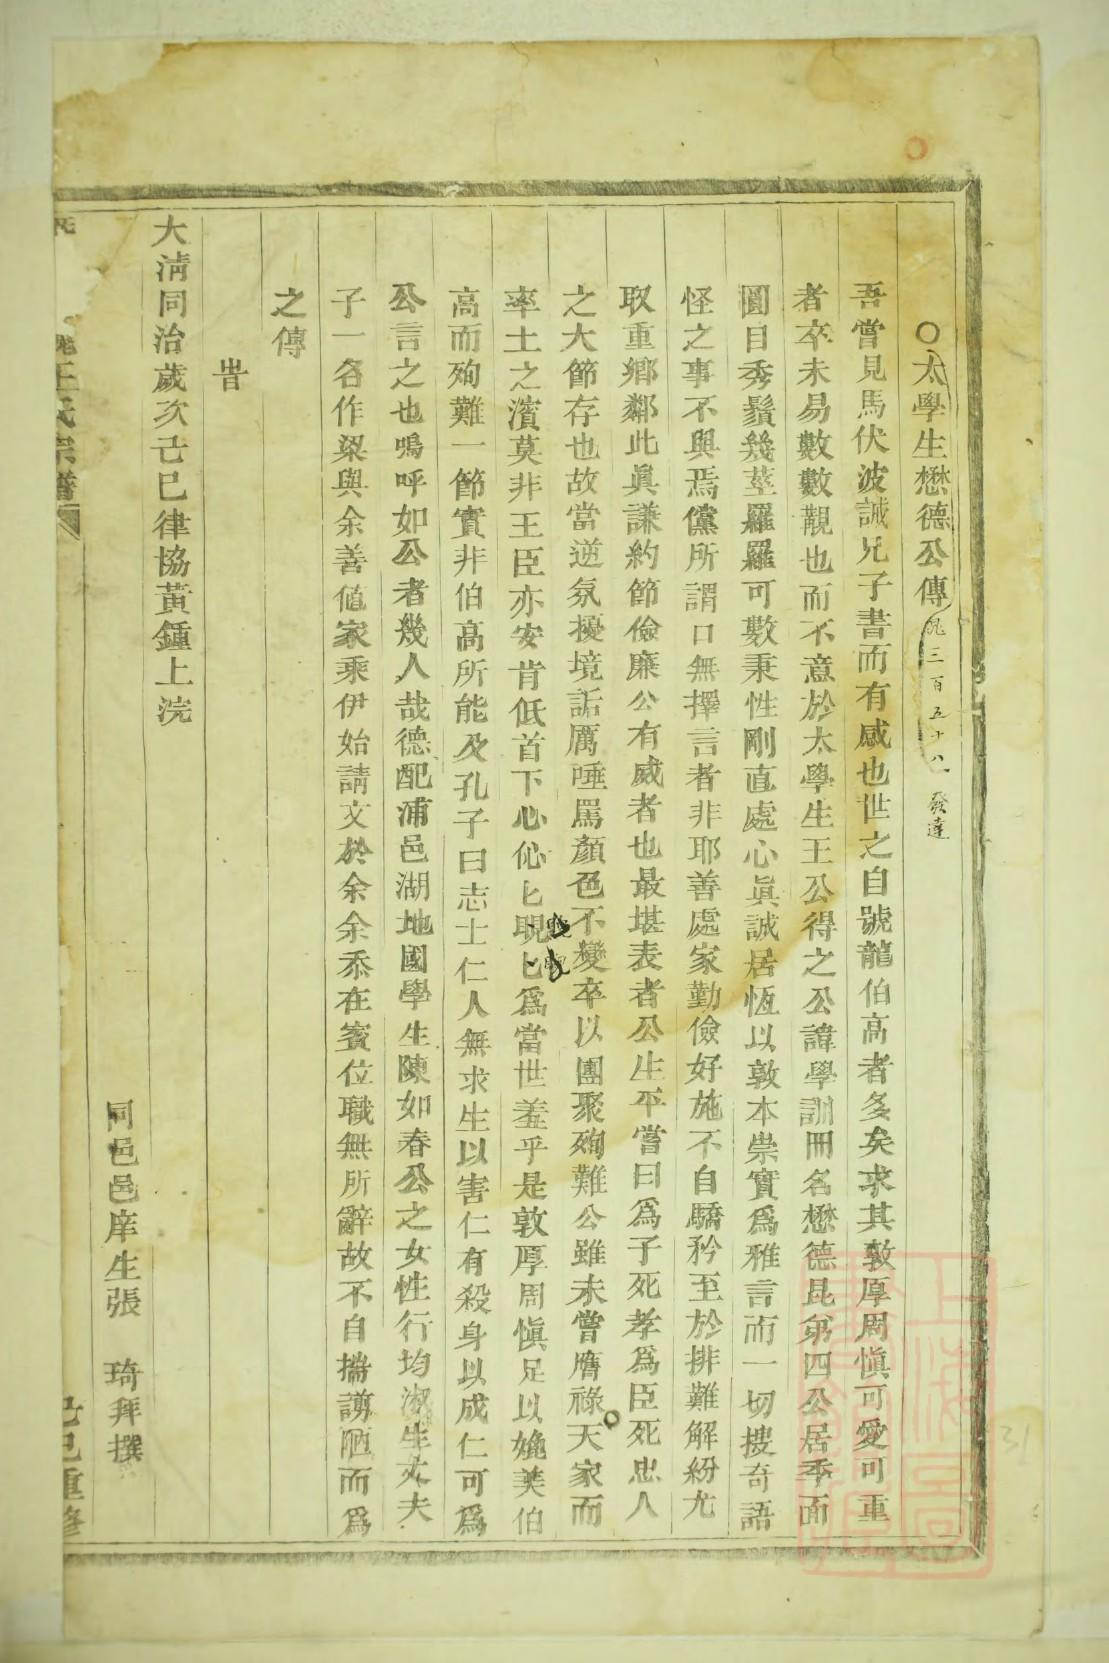 ○太學生懋德公傳 兆三百五十八 發達
吾嘗見馬伏波誡兄子書而有感也世之自號龍伯高者多矣求其敦厚周愼可愛可重
者卒未易數數覯也而不意於太學生王公得之公諱學訓冊名懋德昆弟四公居季面
圓目秀鬚幾莖羅羅可數秉性剛直處心眞誠居恆以敦本崇實爲雅言而一切摟奇語
怪之事不與焉儻所謂口無擇言者非耶善處家勤儉好施不自驕矜至於排難解紛尤
取重鄉鄰此眞謙約節儉廉公有威者也最堪表者公生平嘗曰爲子死孝爲臣死忠人
之大節存也故當逆氛擾境詬厲唾罵顏色不變卒以團聚殉難公雖未嘗膺祿天家而
率土之濱莫非王臣亦安肯低首下心伈匕晛匕爲當世羞乎是敦厚周愼足以媲美伯
高而殉難一節實非伯高所能及孔子曰志士仁人無求生以害仁有殺身以成仁可爲
公言之也嗚呼如公者幾人哉德配浦邑湖地國學生陳如春公之女性行均淑生丈夫
子一名作梁與余善値家乘伊始請文於余余忝在賓位職無所辭故不自揣謭陋而爲
之傳
旹
大淸同治歲次己巳律協黃鍾上浣
同邑邑庠生張 琦拜撰
王氏宗譜
己巳重修
上海圖書館藏
31